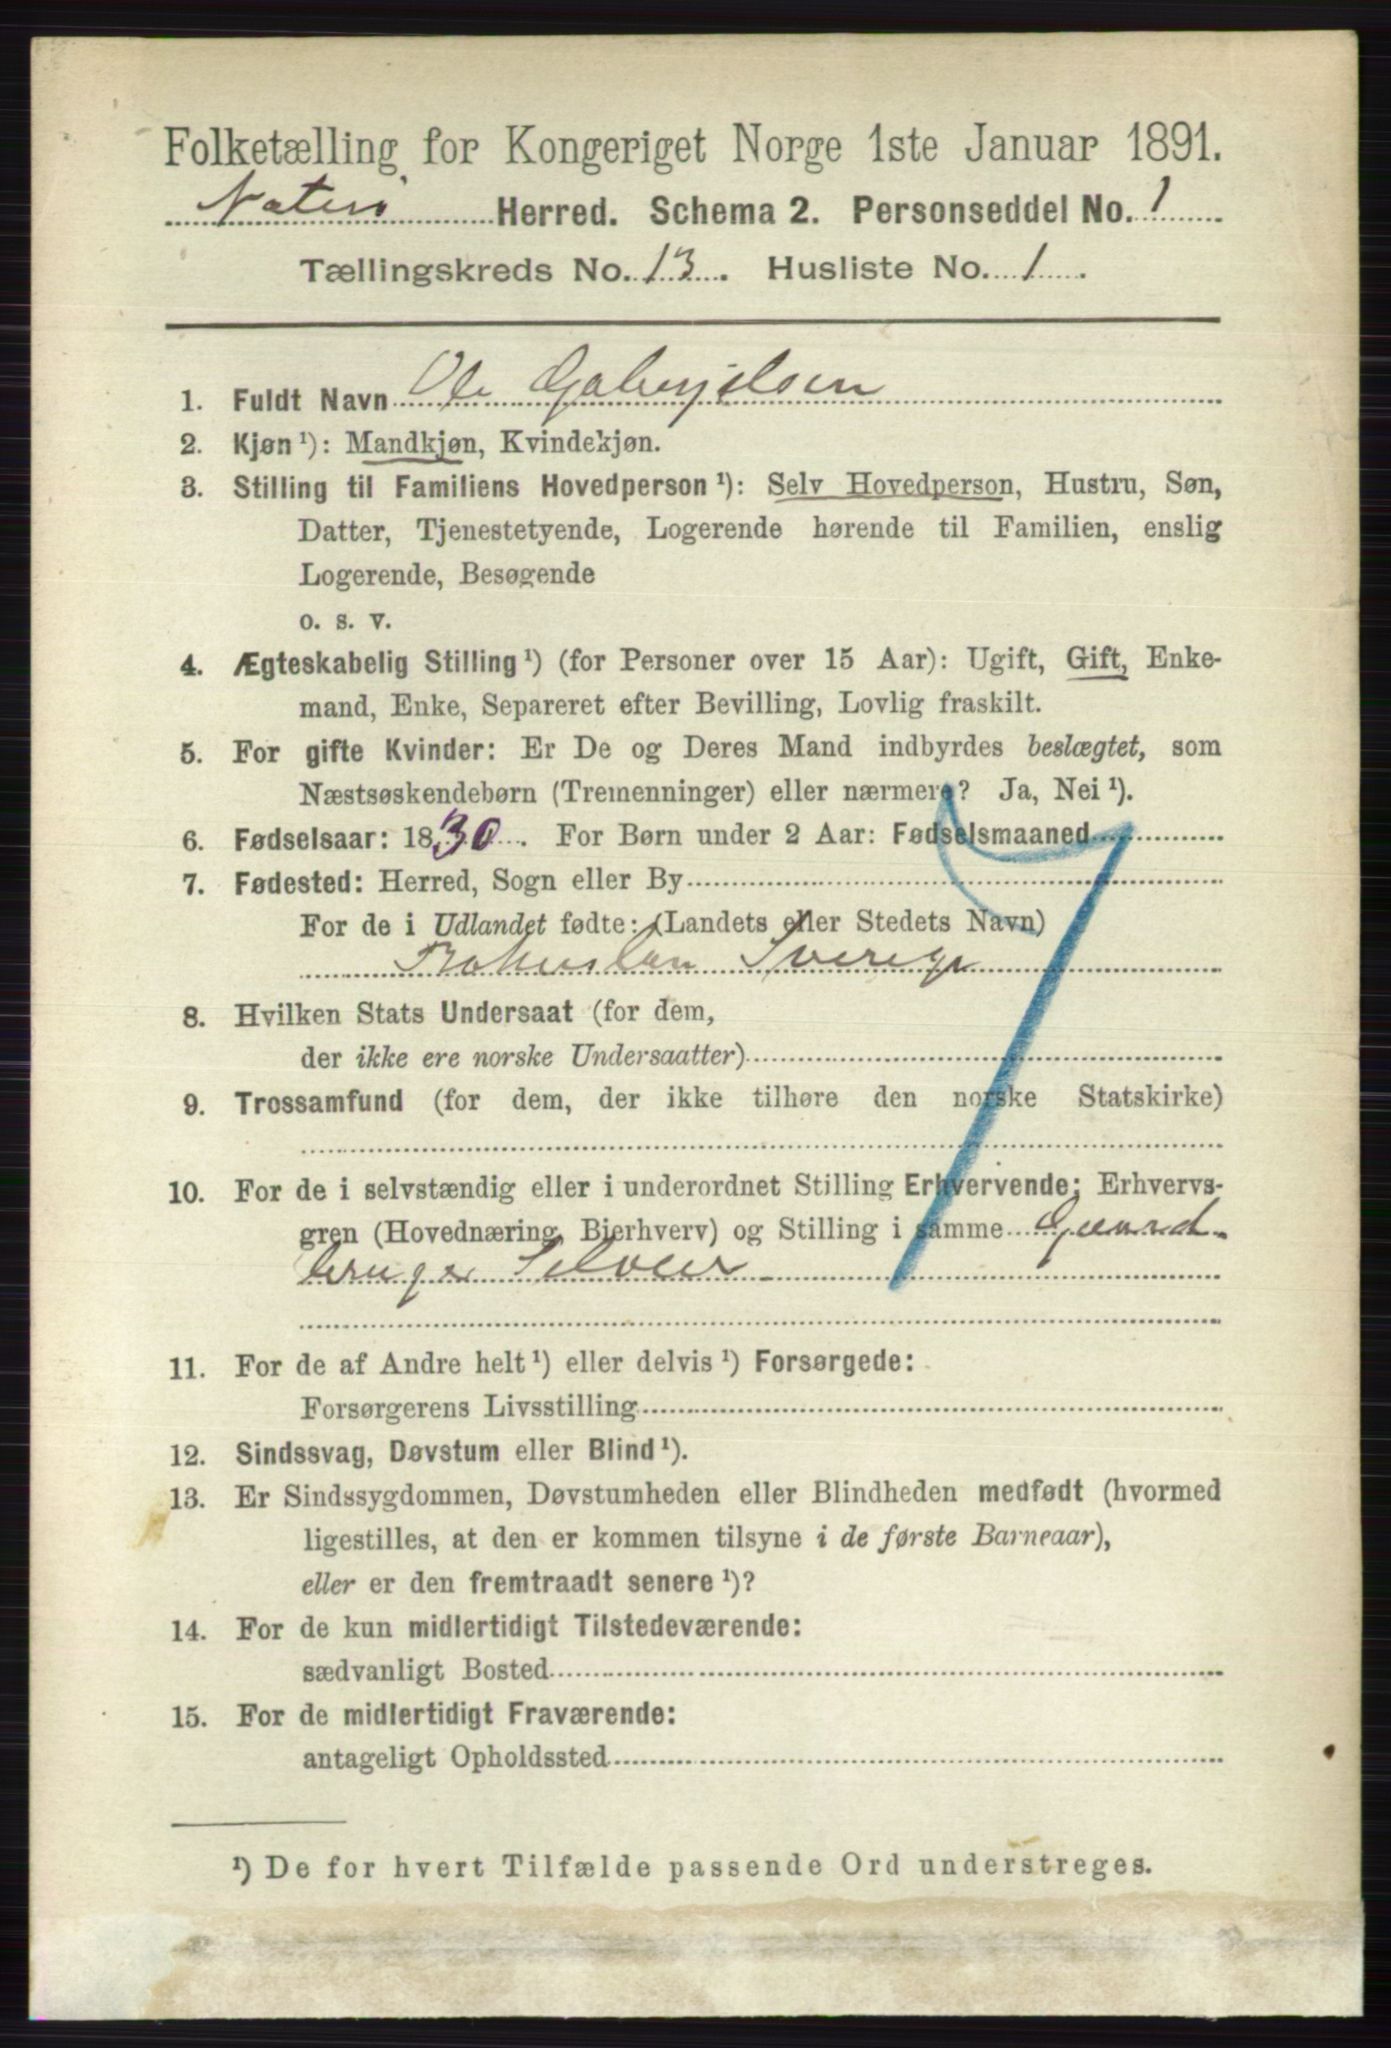 Folketælling for Kongeriget Norge 1ste Januar 1891.
Nøterø Herred. Schema 2. Personseddel No. 1
Tællingskreds No. 13. Husliste No. 1.
1. Fuldt Navn Ole Gabrjelsen
2. Kjøn ¹): Mandkjøn, Kvindekjøn.
3. Stilling til Familiens Hovedperson ¹): Selv Hovedperson, Hustru, Søn,
Datter, Tjenestetyende, Logerende hørende til Familien, enslig
Logerende, Besøgende
o. s. v.
4. Ægteskabelig Stilling ¹) (for Personer over 15 Aar): Ugift, Gift, Enke-
mand, Enke, Separeret efter Bevilling, Lovlig fraskilt.
5. For gifte Kvinder: Er De og Deres Mand indbyrdes beslægtet, som
Næstsøskendebørn (Tremenninger) eller nærmere? Ja, Nei ¹).
6. Fødselsaar: 1830. For Børn under 2 Aar: Fødselsmaaned
7. Fødested: Herred, Sogn eller By
For de i Udlandet fødte: (Landets eller Stedets Navn)
Bohuslan Sverige
8. Hvilken Stats Undersaat (for dem,
der ikke ere norske Undersaatter)
9. Trossamfund (for dem, der ikke tilhøre den norske Statskirke)
10. For de i selvstændig eller i underordnet Stilling Erhvervende: Erhvervs-
gren (Hovednæring, Bierhverv) og Stilling i samme Gaard-
bruger Selveier
11. For de af Andre helt ¹) eller delvis ¹) Forsørgede:
Forsørgerens Livsstilling
12. Sindssvag, Døvstum eller Blind ¹).
13. Er Sindssygdommen, Døvstumheden eller Blindheden medfødt (hvormed
ligestilles, at den er kommen tilsyne i de første Barneaar),
eller er den fremtraadt senere ¹)?
14. For de kun midlertidigt Tilstedeværende:
sædvanligt Bosted
15. For de midlertidigt Fraværende:
antageligt Opholdssted
¹) De for hvert Tilfælde passende Ord understreges.